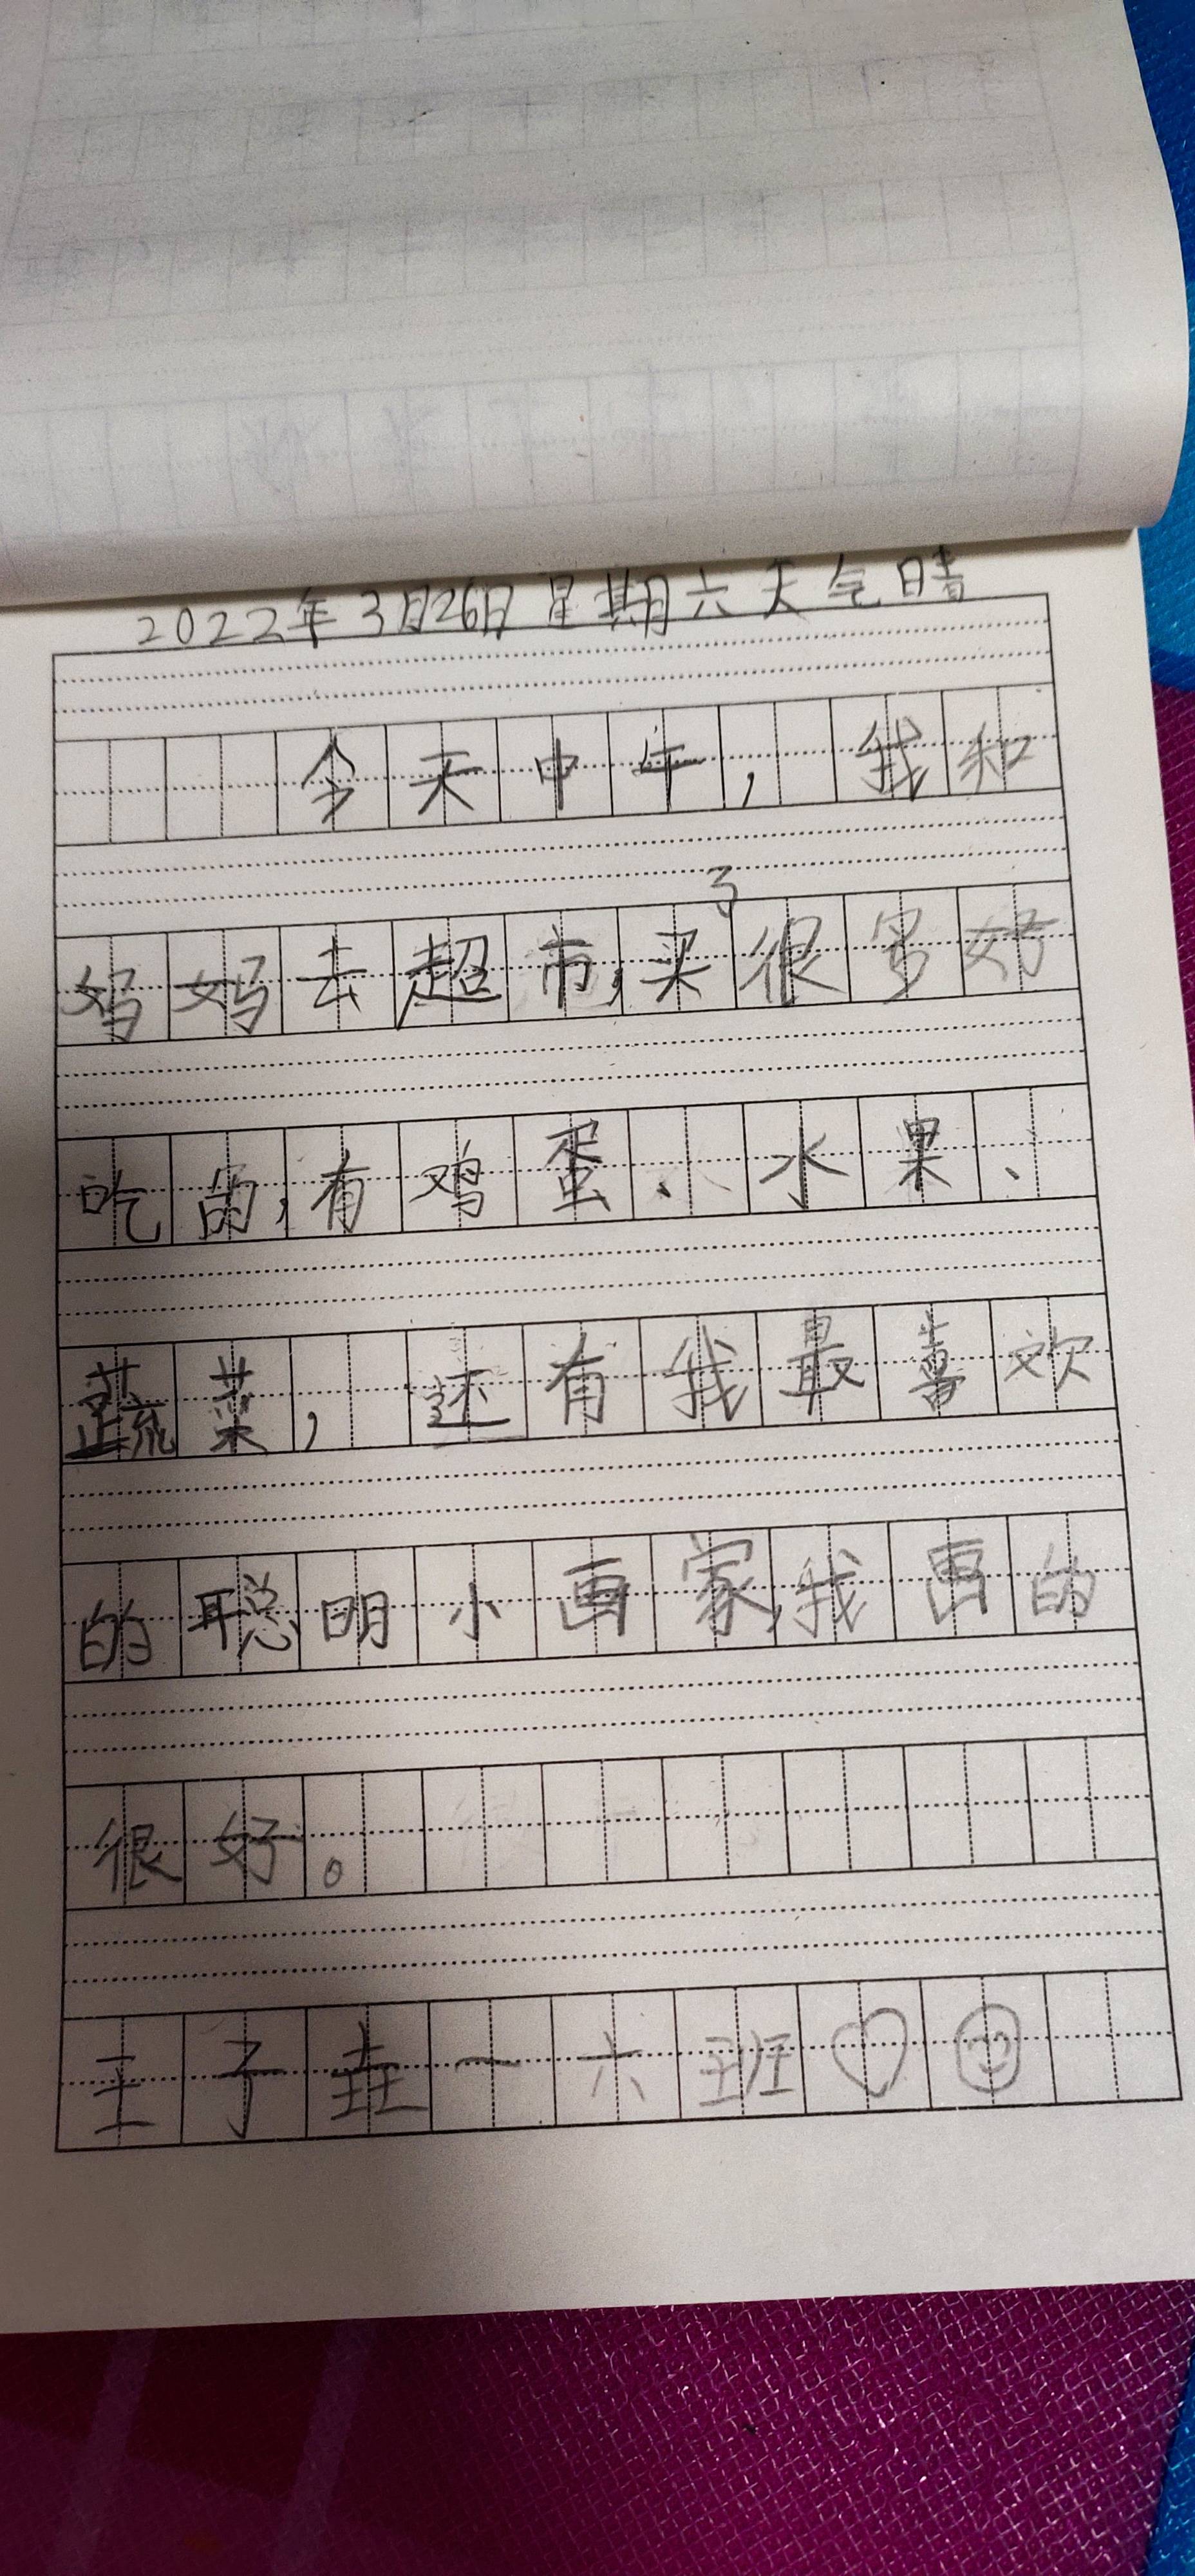 2022年3月26日星期六天气晴
今天中午，我和
妈妈去超市，买了很多好
吃的，有鸡蛋、水果、
蔬菜，还有我最喜欢
的聪明小画家，我画的
很好。
王子垚一六班